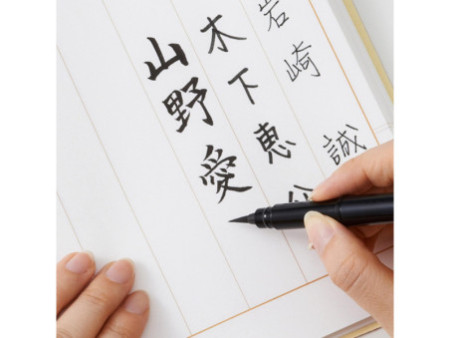 岩崎 誠
木下恵
山野愛